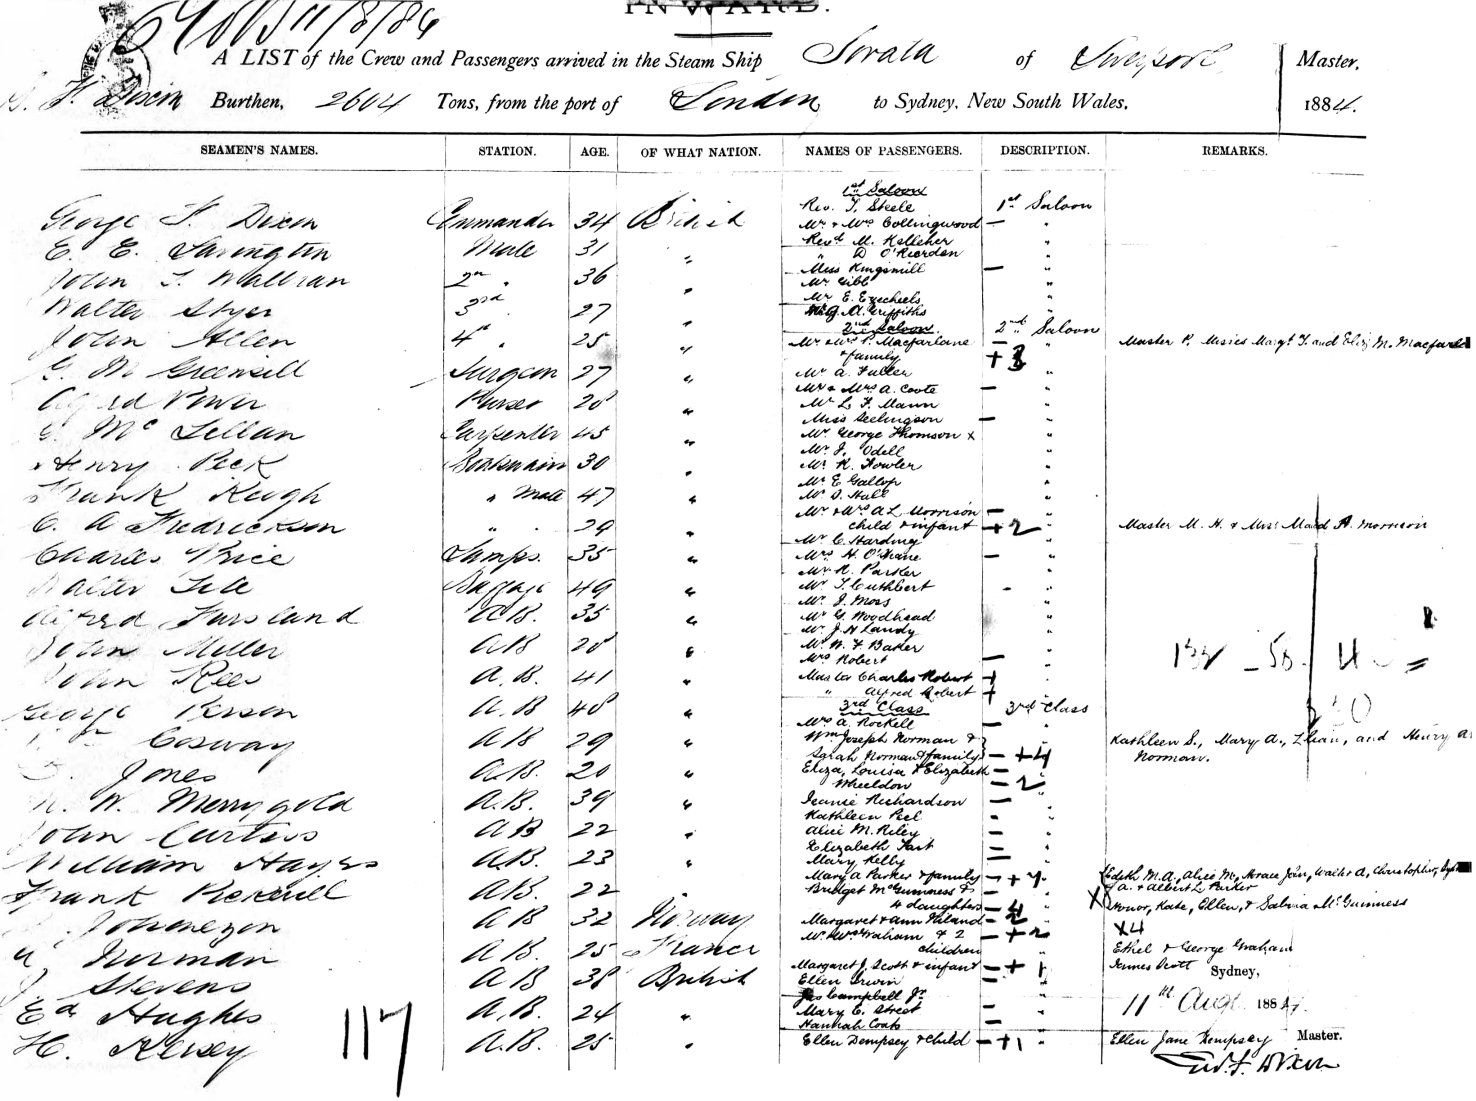 INWARD.
11/8/84
A LIST of the Crew and Passengers arrived in the Steam Ship Sorata of Liverpool, Master,
G. F. Dixon Burthen, 2604 Tons, from the port of London to Sydney, New South Wales, 1884.
SEAMEN'S NAMES. STATION. AGE. OF WHAT NATION. NAMES OF PASSENGERS. DESCRIPTION. REMARKS.
George F. Dixon Commander 34 British
E. E. Mate 31 "
John T. Walbran 2nd " 36 "
Walter 3rd 27 "
John Allen 4th " 25 "
G. M. Greensill Surgeon 27 "
Alfred Power Purser 28 "
McLellan Carpenter 45 "
Henry Peck Boatswain 30 "
Frank Keogh " Mate 47 "
C. A. Fredrickson " " 29 "
Charles Price Lamps. 35 "
Walter Baggage 49 "
Alfred A.B. 35 "
John Miller AB 28 "
John Rees A.B. 41 "
George A.B 48 "
Wm Cosway AB 29 "
Jones A.B. 20 "
W. Merrygold A.B. 39 "
John Curtiss AB 22 "
William Hayes A.B. 23 "
Frank AB. 22 "
AB 32 Norway
Norman AB. 25 France
J. Stevens AB 38 British
Ed Hughes A.B. 24 "
H. Kersey A.B. 25 "
117
1st Saloon
Rev. T. Steele 1st Saloon
Mr & Mrs Collingwood — "
Revd M. Kelleher "
" D O'Riordan "
Miss Kingsmill — "
Mr Gibb "
Mr E. Ezechiels "
A. Griffiths "
2nd Saloon 2nd Saloon
Mr & Mrs P. Macfarlane — " Master P., Misses Margt. T. and Eliz M. Macfarl
& family + 3
Mr A. Fuller "
Mr & Mrs A. Coote — "
Mr L. F. Mann "
Miss Seelingson — "
Mr George Thomson x "
Mr J. Odell "
Mr R. Fowler "
Mr E Gallop "
Mr S. Hall "
Mr & Mrs A L Morrison —
child & infant + 2 " Master M. H. & Miss Maud A. Morrison
Mr C. Harding "
Mrs H. O'Kane — "
Mr R. Parker "
Mr T Cuthbert - "
Mr. J. Moss "
Mr G. Woodhead "
Mr. J. H Landy "
Mr W. F Baker "
Mrs Robert —
Master Charles Robert +
" Alfred Robert +
3rd Class 3rd Class
Mrs A. Rockell — "
Wm Joseph Norman &
Sarah Norman & family — + 4 Kathleen S., Mary A., Lilian, and Henry A
Norman.
Eliza, Louisa & Elizabeth —
Wheeldon — 2
Jeanie Richardson — "
Kathleen Peel - "
Alice M. Riley — "
Elizabeth Tart — "
Mary Kelly — "
Mary A Parker & family — + 7 Edith M. A, Alice M, Horace John, Walter A, Christopher,
A. & Albert L Parker
Bridget McGuinness & — "
4 daughters — 4 Honor, Kate, Ellen, & Sabina McGuinness
Margaret & Ann — 2
x4
Mr. & Mrs Graham & 2 — + 2
children Ethel & George Graham
Margaret J. Scott & infant — + 1 James Scott
Ellen Irwin — "
Jas Campbell Jr "
Mary C. Street — "
Hannah Coats — "
Ellen Dempsey & child — + 1 " Ellen Jane Dempsey
Sydney,
11th Augt. 1884.
Master.
Geo. F. Dixon